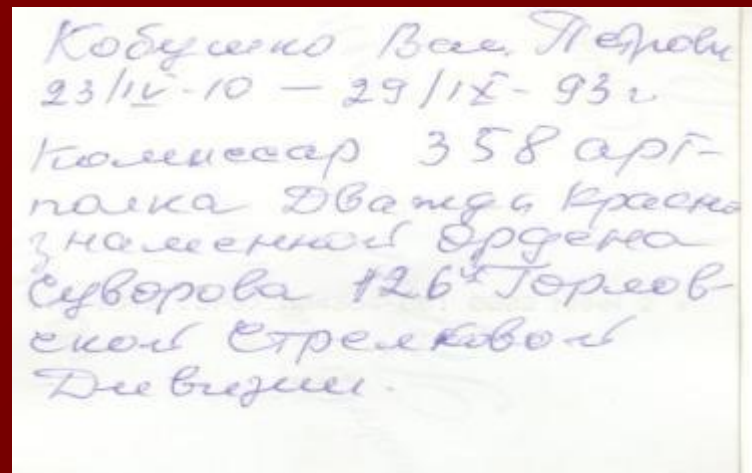 Кобушко Вас. Петрович
23/IV-10 — 29/IX-93 г
Комиссар 358 арт-
полка Дважды Красно
знаменной ордена
Суворова 126й Горлов-
ской Стрелковой
Дивизии.